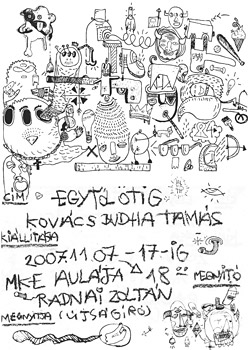 CÍM:
EGYTŐL ÖTIG
KOVÁCS BUDHA TAMÁS
KIÁLLÍTÁSA
2007.11.07-17-IG
MKE AULÁJA 18⁰⁰
MEGNYITÓ
RADNAI ZOLTÁN
MEGNYITJA (ÚJSÁGÍRÓ)